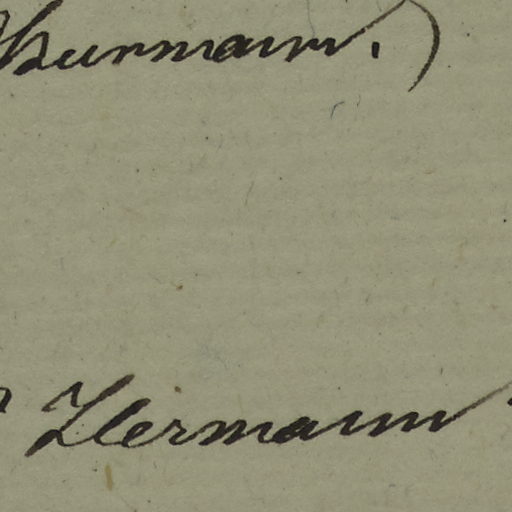 Thurmann.)
Hermann